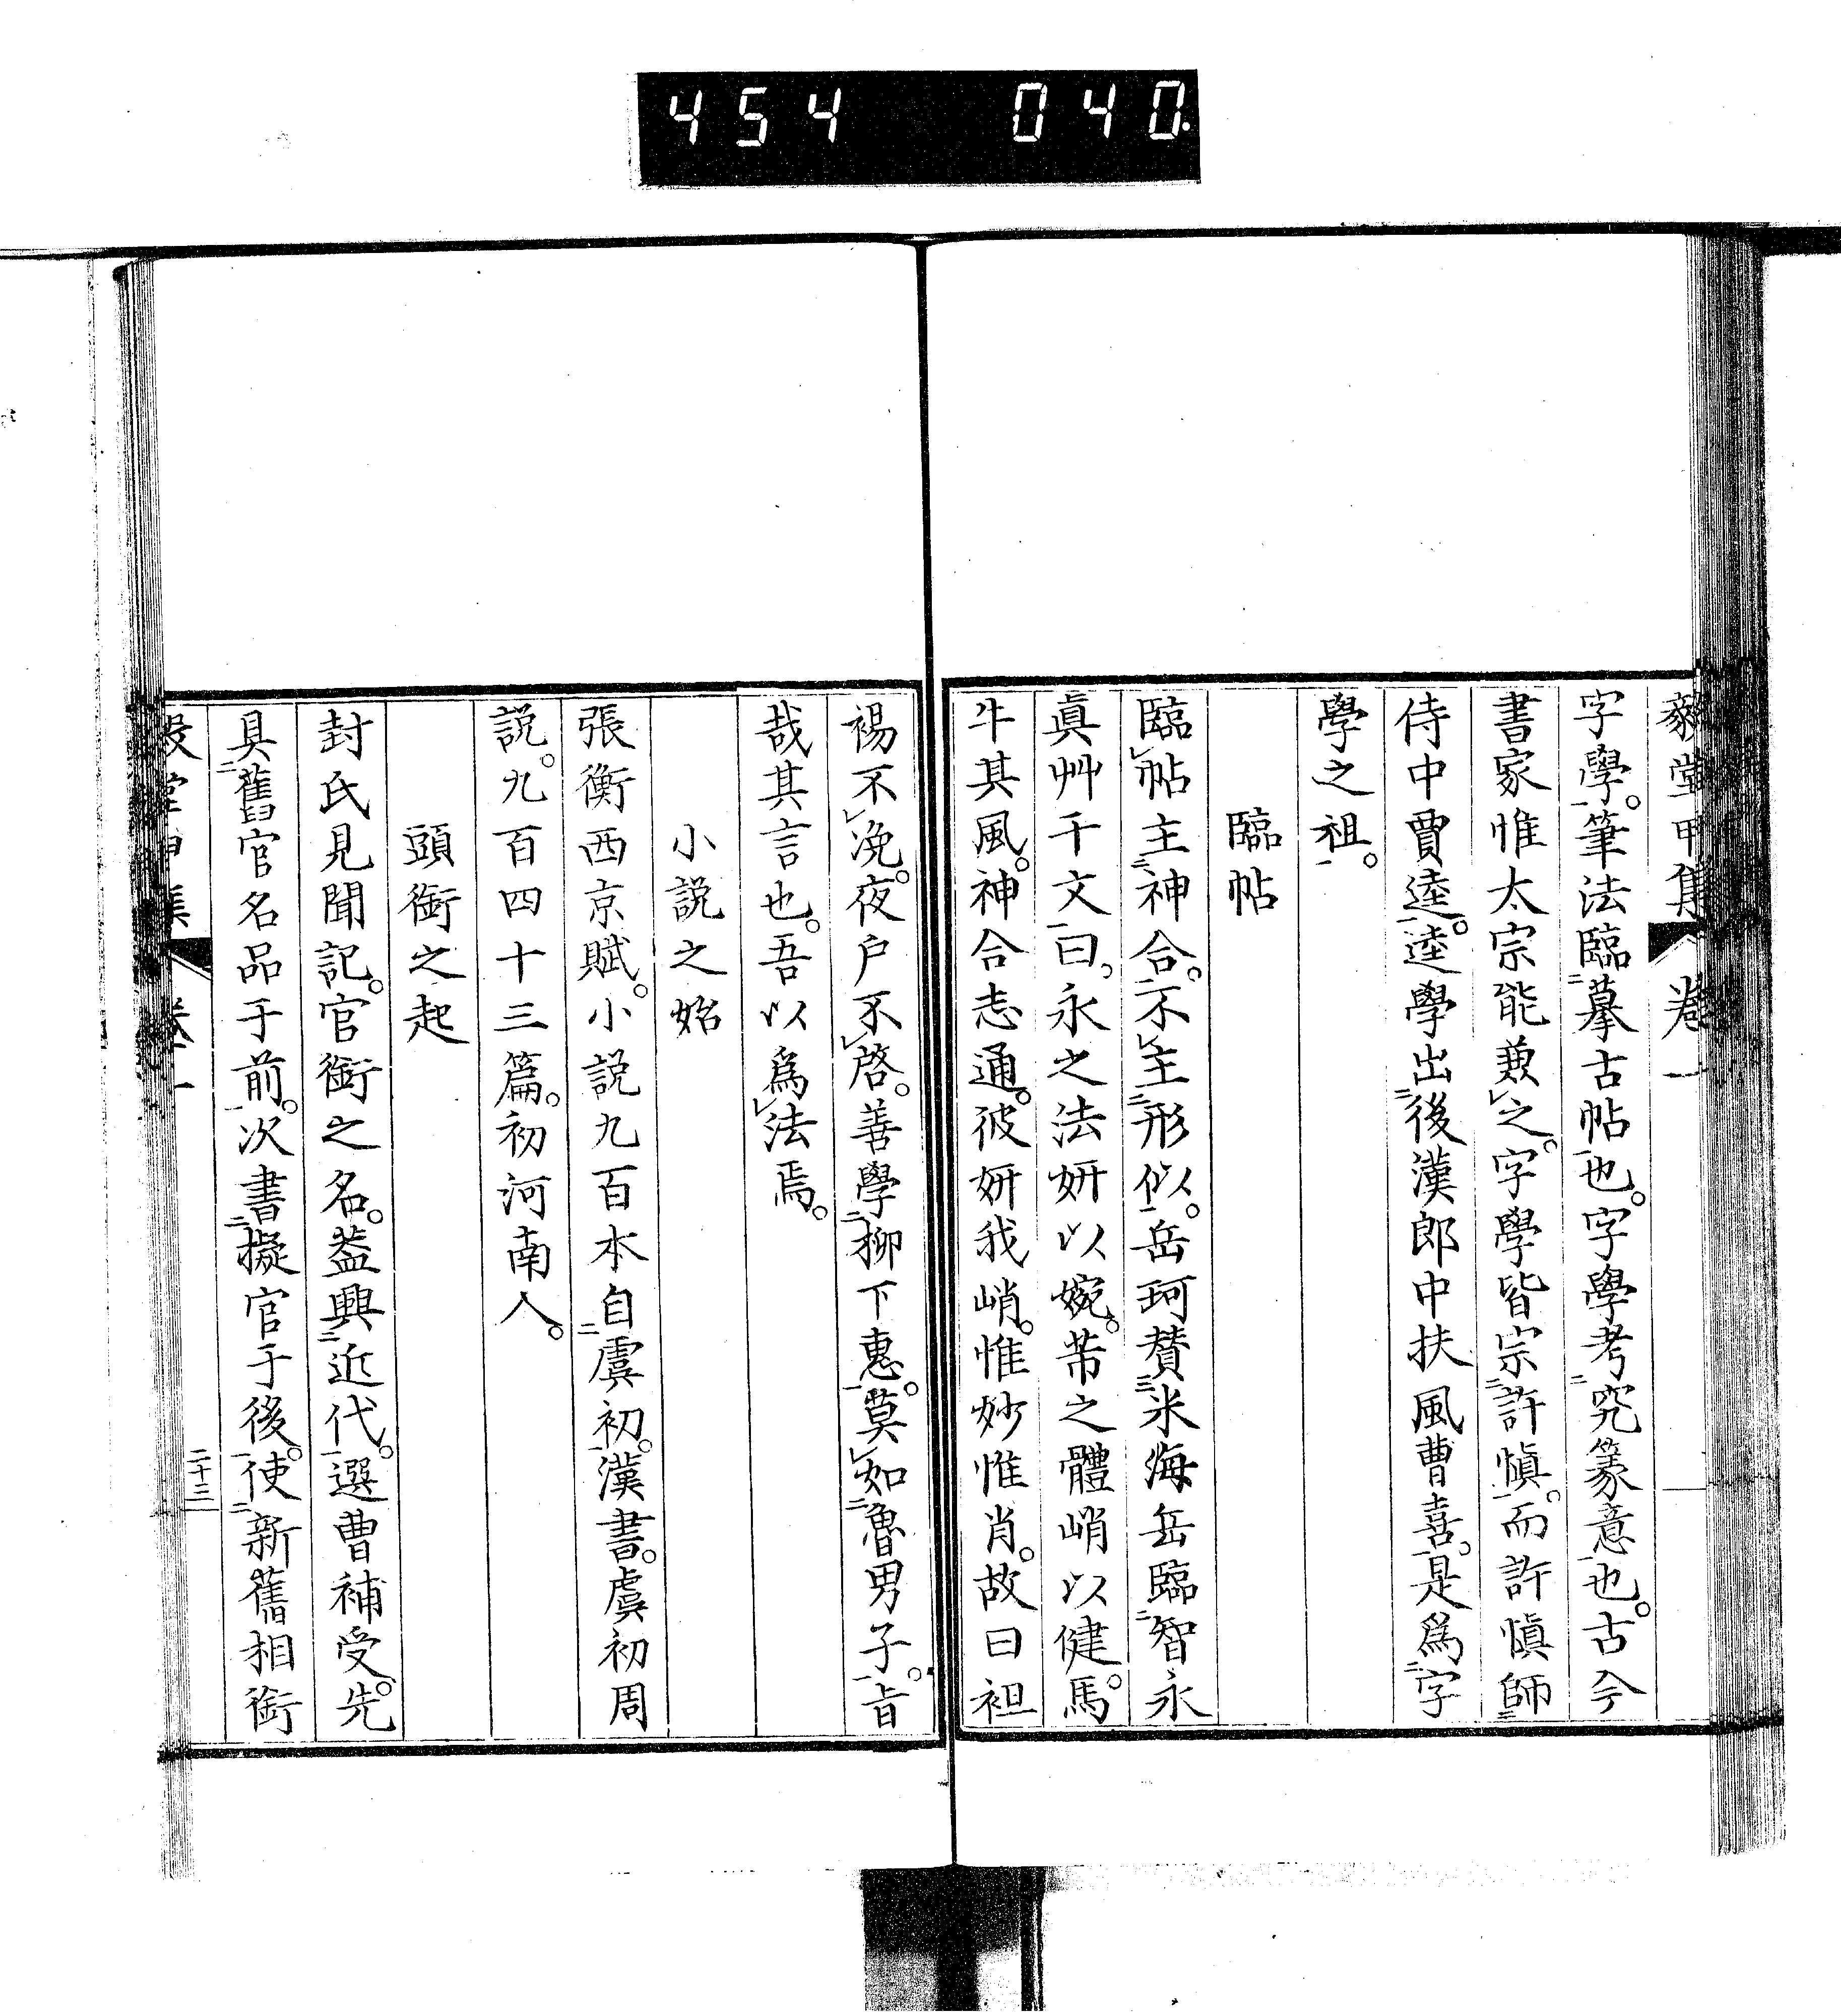 454 040
毅堂甲集 卷一
字學。筆法臨二摹古帖一也。字學考二究篆意一也。古今
書家惟太宗能兼レ之。字學皆宗二許愼一。而許愼師三
侍中賈逵一。逵學出二後漢郎中扶風曹喜一。是爲二字
學之祖一。
臨帖
臨レ帖主三神合。不レ主二形似一。岳珂贊三米海岳臨二智永
眞艸千文一曰。永之法妍以婉。芾之體峭以健。馬
牛其風。神合志通。彼妍我峭。惟妙惟肖。故曰袒
裼不レ浼。夜户不レ啓。善學二柳下惠一。莫レ如二魯男子一。旨
哉其言也。吾以爲レ法焉。
小説之始
張衡西京賦。小説九百本自二虞初一。漢書。虞初周
説。九百四十三篇。初河南人。
頭銜之起
封氏見聞記。官銜之名。葢興二近代一。選曹補受。先
具二舊官名品于前一。次書二擬官于後一。使二新舊相銜
毅堂甲集 卷一 二十三